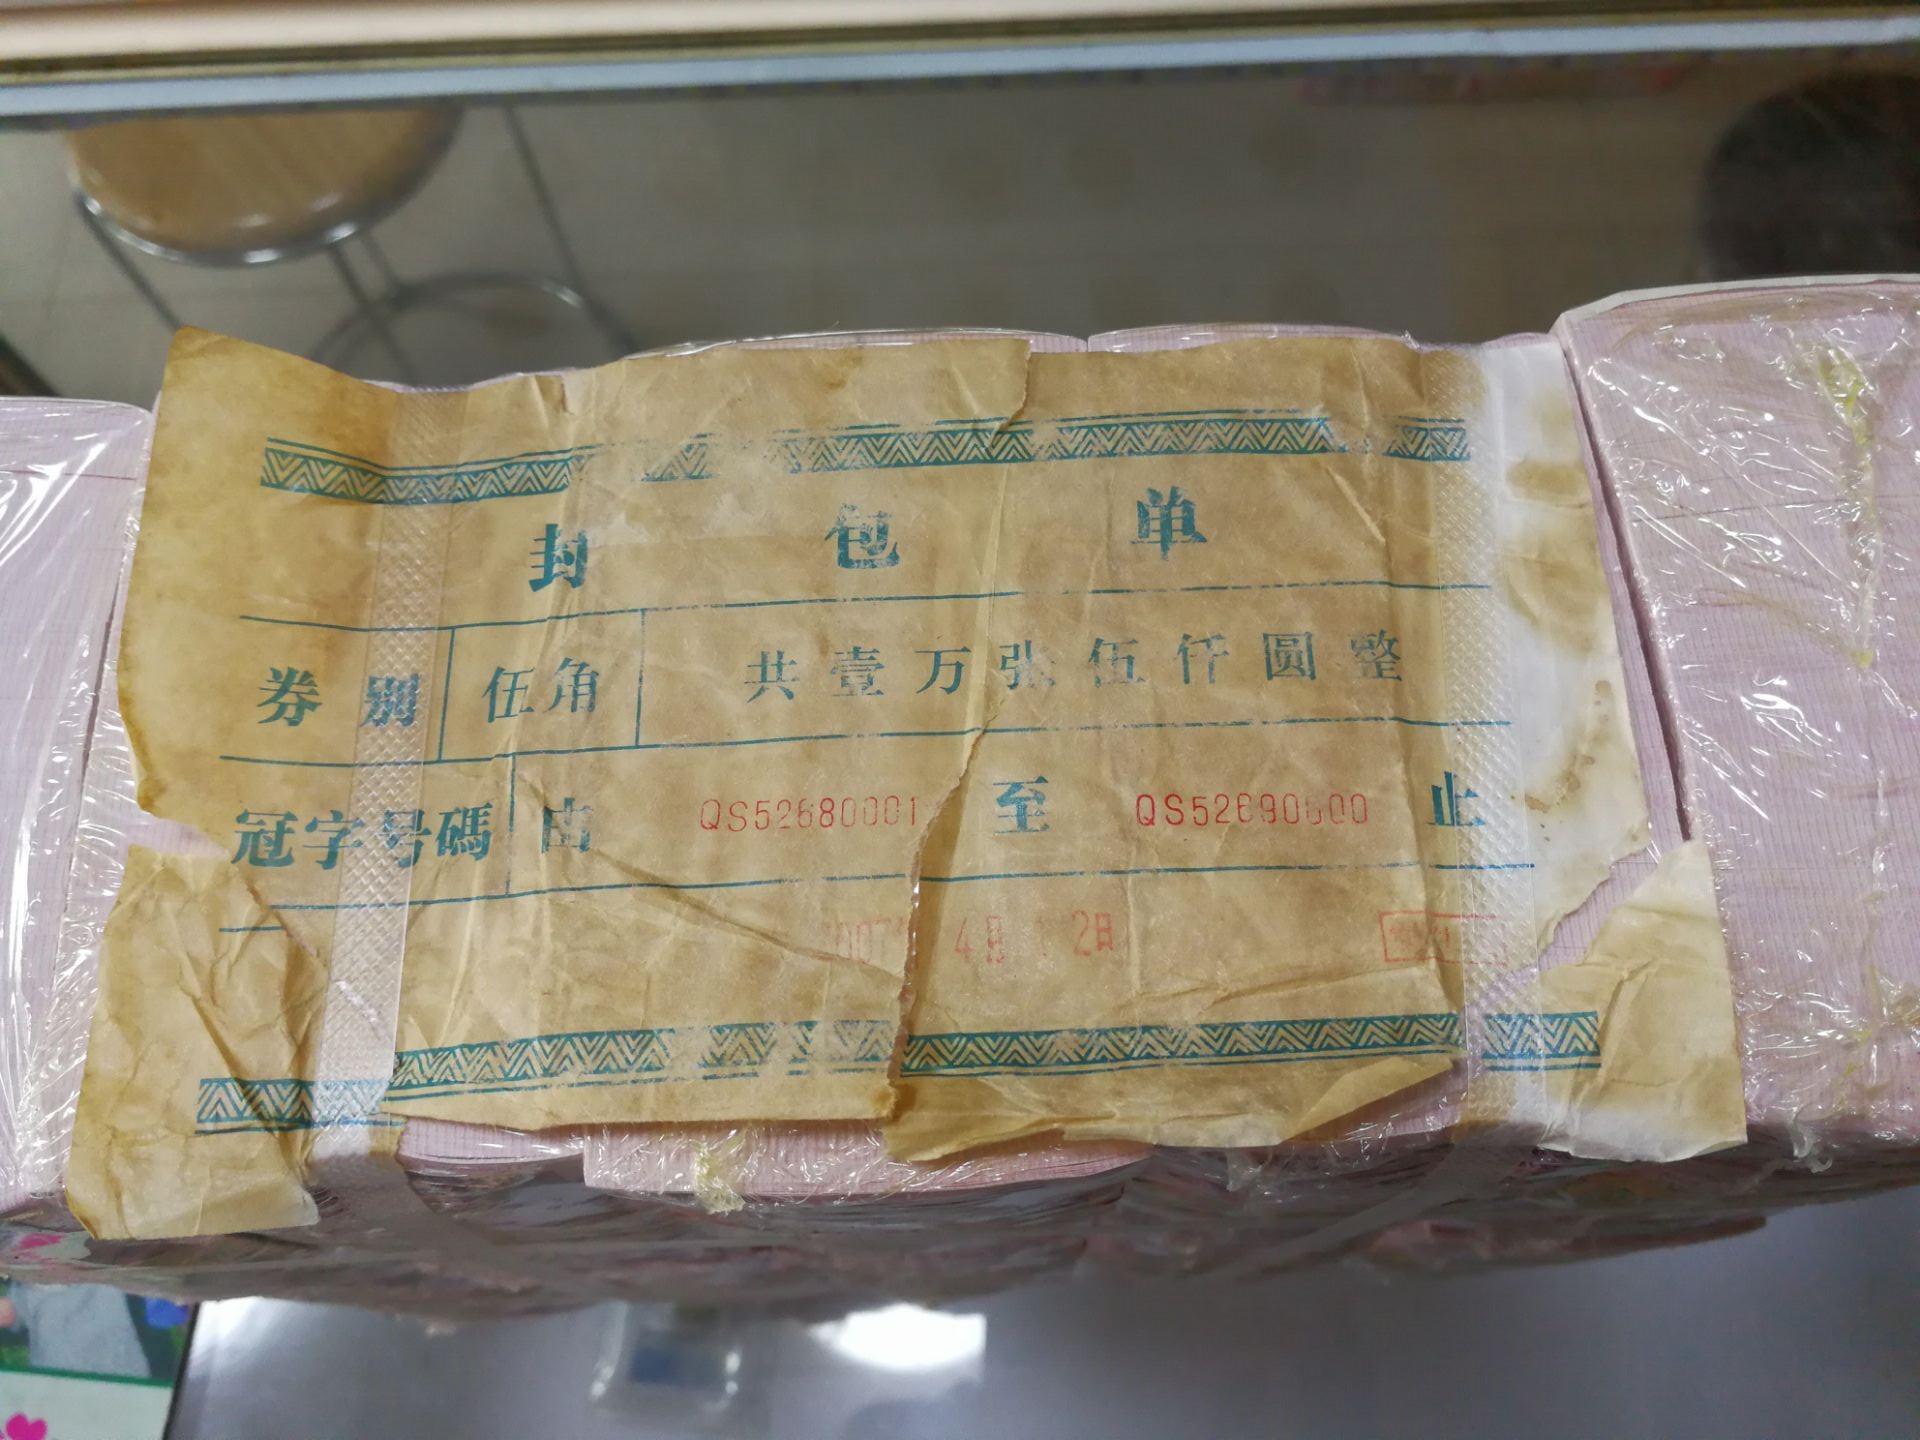 封包单
券别 伍角 共壹万张伍仟圆整
冠字号碼 由 QS52680001 至 QS52690000 止
4月 2日